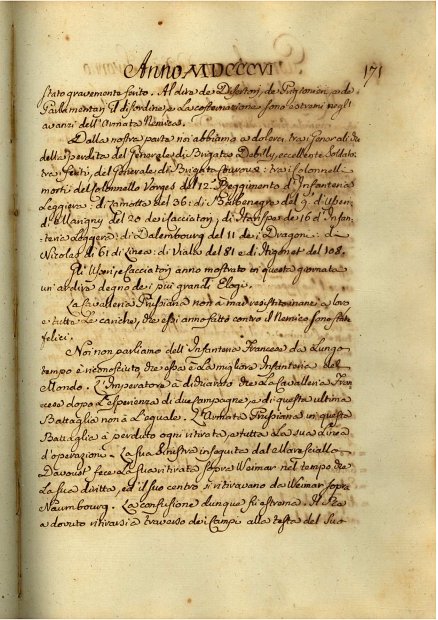 Anno MDCCCVI
171
stato gravemente ferito. Al dire de Disertori, de Prigionieri, e de
Parlamentari il disordine, e la costernazione sono estremi negli
avanzi dell'Armata Nemica.
Dalla nostra parte noi abbiamo a dolerci tra i Generali che
della perdita del Generale di Brigata Debilly, eccellente Soldato:
tra i feriti, del Generale di Brigata Couroux: tra i Colonnelli
morti del Colonnello Vorges del 12. Reggimento d'Infanteria
Leggiera: di Lamotte del 36: di Barbenegre del 9. di Usseri:
di Marigny del 20 de i Cacciatori; di Harispe de 16 d'Infan-
teria Leggera: di Dalembourg del 11 de i Dragoni: di
Nicolas di 61 di Linea: di Viala del 81 e di Higonet del 108.
Gl'Usseri, e i Cacciatori anno mostrato in questa giornata
un'ardire degno de i più grandi Elogi.
La Cavalleria Prussiana non à mai resistito inanzi a loro
e tutte le cariche, che essi anno fatto contro il Nemico sono state
felici.
Noi non parliamo dell'Infanteria Francese da Lungo
tempo è riconosciuto che essa è la migliore Infanteria del
Mondo. L'Imperatore à dichiarato che la Cavalleria Fran-
cese dopo l'esperienza di due Campagne, e di questa ultima
Battaglia non à L'eguale. L'Armata Prussiana in questa
Battaglia à perduto ogni ritirata, e tutta la sua linea
d'operazione. La sua sinistra inseguita dal Maresciallo
Davoust fece la sua ritirata sopra Weimar nel tempo che
la sua diritta, ed il suo centro si ritiravano da Weimar sopra
Naumbourg. La confusione dunque fù estrema. Il Rè
a dovuto ritirarsi a traverso de i Campi alla testa del suo